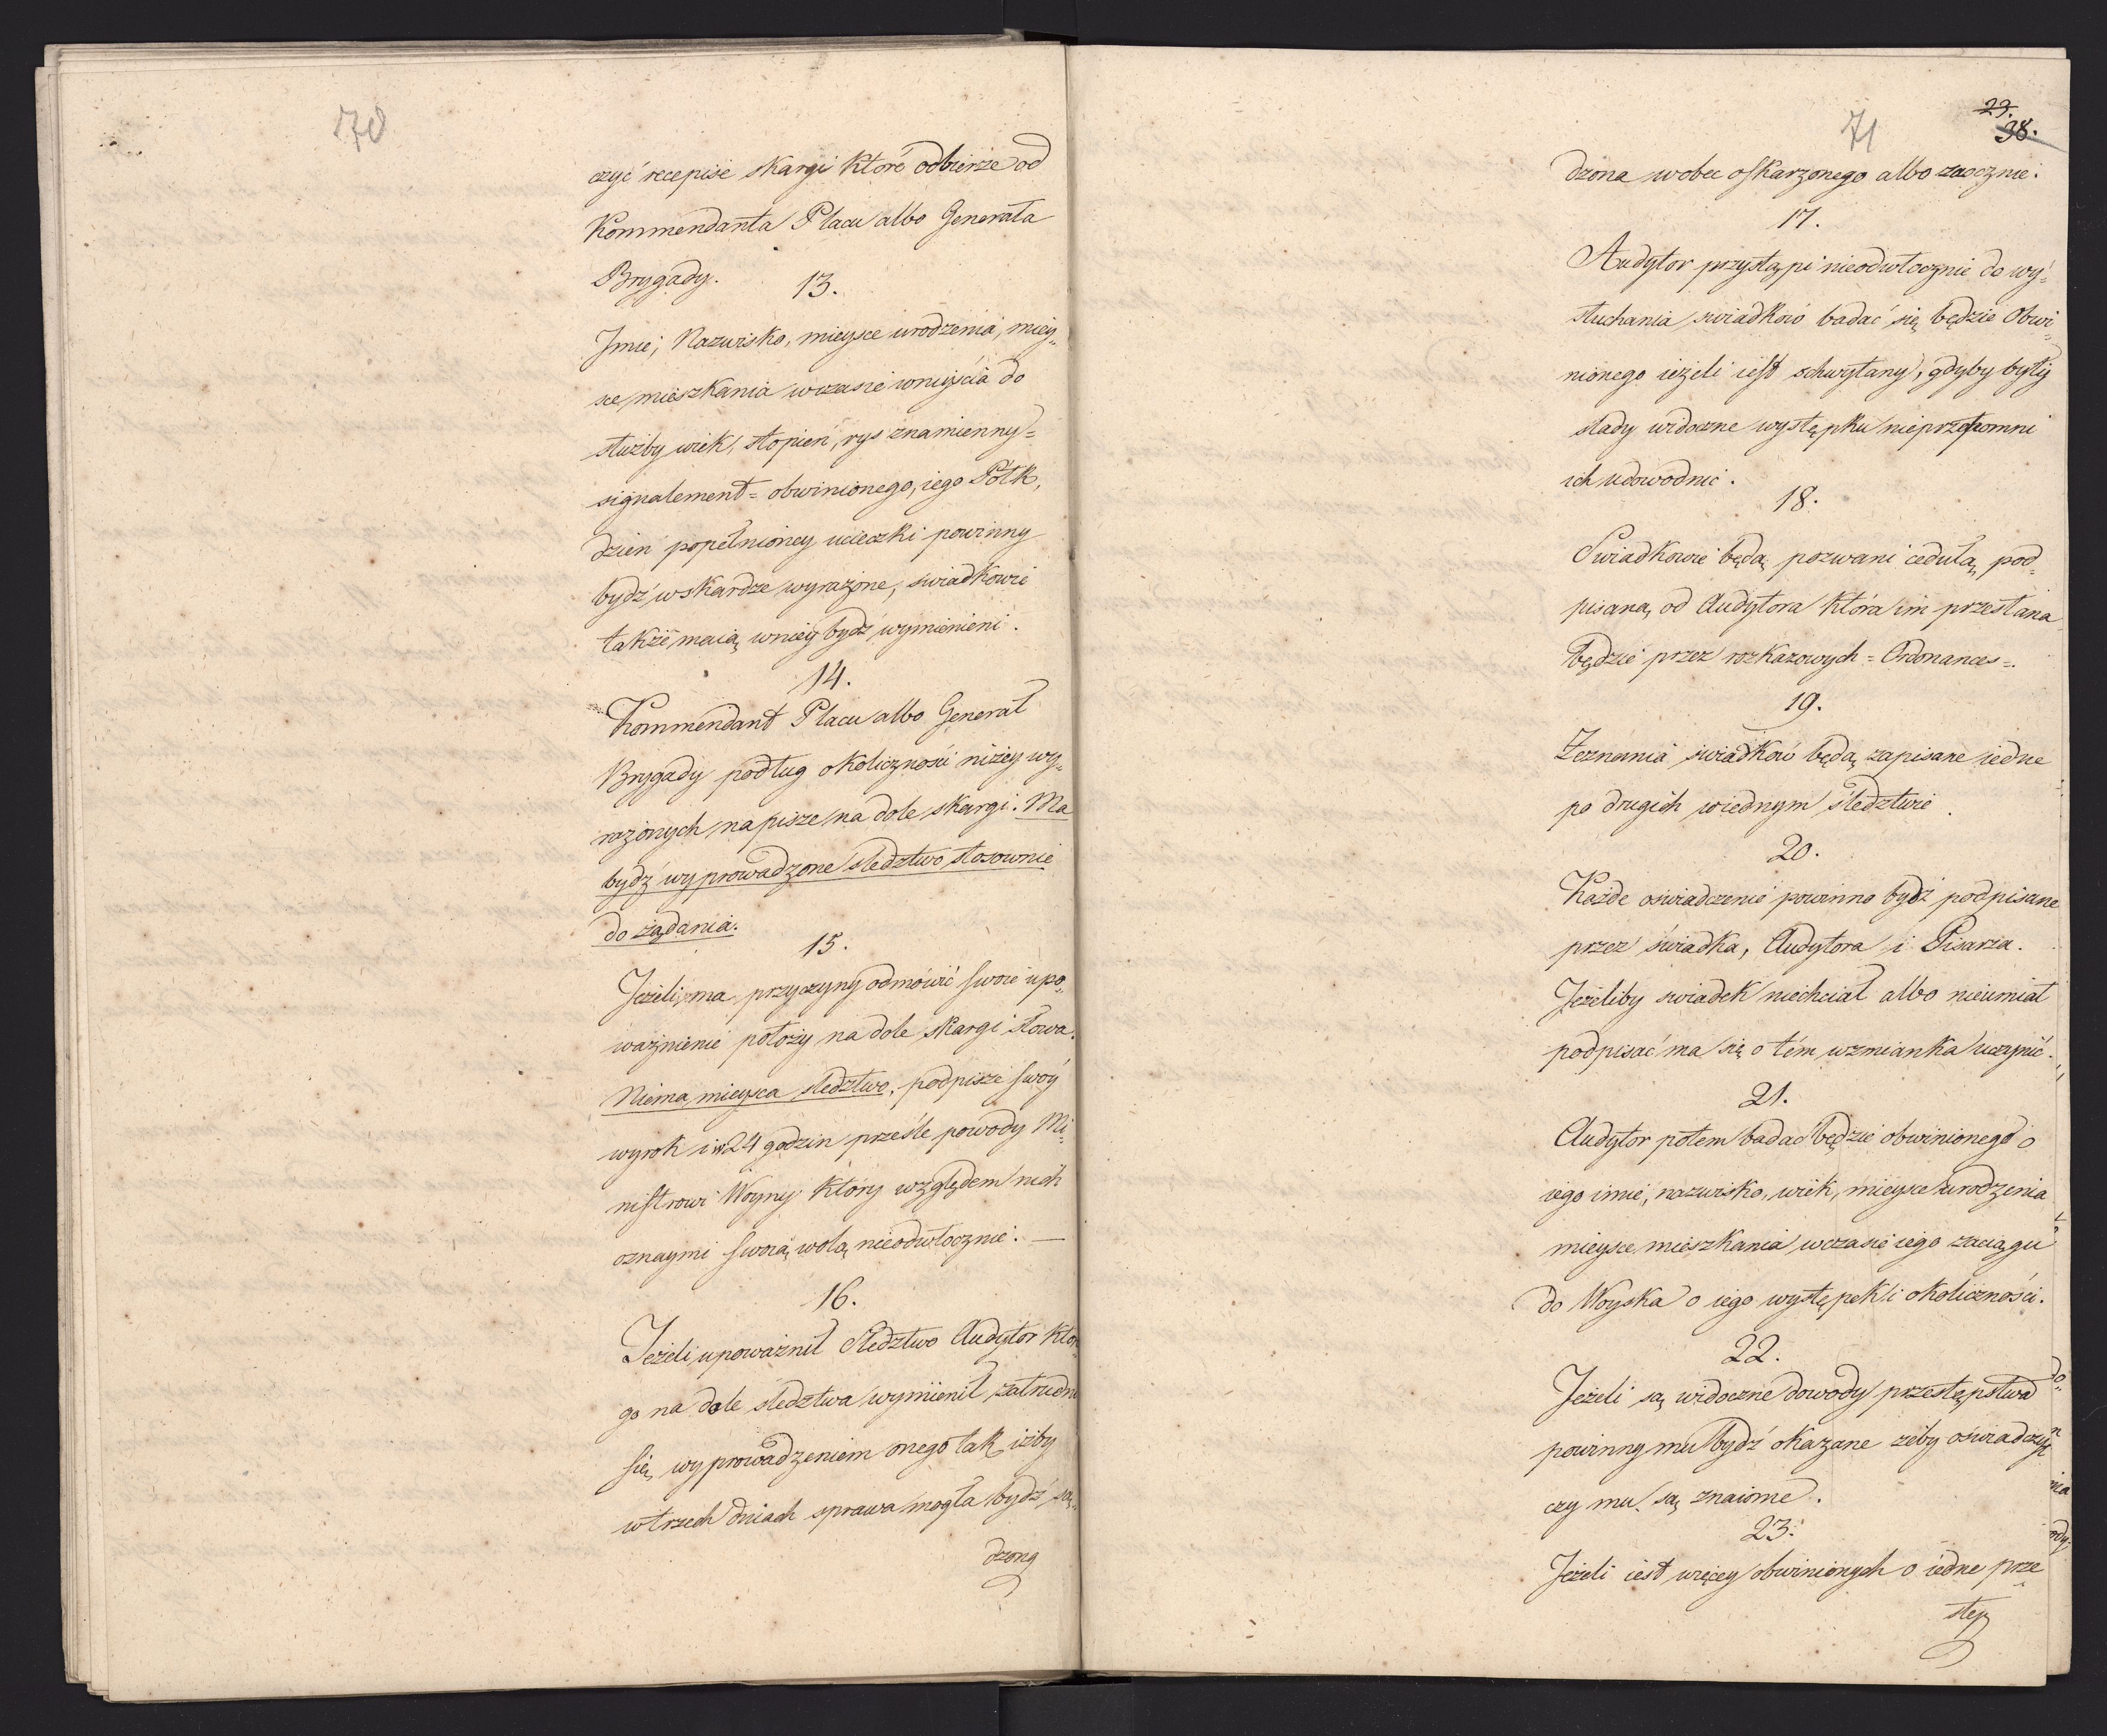 70
czyć recepisse skargi które odbierze od
Kommendanta Placu albo Generała
Brygady.
13.
Jmie, Nazwisko, mieysce urodzenia, miey„
sce mieszkania w czasie wniyścia do
służby wiek, stopień, rys znamienny =
signalement = obwinionego, iego Półk,
dzień popełnioney ucieczki powinny
bydź w skardze wyrażone, swiadkowie
także maią w niey bydz wymienieni.
14.
Kommendant Placu albo Generał
Brygady podług okoliczności niżey wy„
rażonych napisze na dole skargi. Ma
bydź wyprowadzone sledztwo stosownie
do żądania.
15.
Jeżeli ma przyczyny odmówić swoie upo„
ważnienie położy na dole skargi słowa.
Niema mieysca sledztwo, podpisze swóy
wyrok i w 24 godzin prześle powody Mi„
nistrowi Woyny który względem nich
oznaymi swoią wolą nieodwłocznie. —
16.
Jeżeli upoważnił Sledztwo Audytor któr„
go na dole sledztwa wymienił zatrudni
się wyprowadzeniem onego tak iżby
w trzech dniach sprawa mogła bydź są„
dzona
23.
38.
71
dzona wobec oskarzonego albo zaocznie.
17.
Audytor przystąpi nieodwłocznie do wy„
słuchania swiadków badać się będzie Obwi„
nionego ieżeli iest schwytany, gdyby były
slady widoczne występku nieprzepomni
ich udowodnić.
18.
Swiadkowie będą pozwani cedułą pod„
pisaną od Audytora która im przesłana
będzie przez rozkazowych = Ordonances =.
19.
Zeznania swiadków będą zapisane iedne
po drugich w iednym śledztwie.
20.
Każde oswiadczenie powinno bydź podpisane
przez swiadka, Audytora i Pisarza.
Jeżeliby swiadek niechciał albo nieumiał
podpisać ma się o tém wzmianka uczynić.
21.
Audytor potem badać będzie obwinionego o
iego imie, nazwisko, wiek, mieysce urodzenia
mieysce mieszkania w czasie iego zaciągu
do Woyska o iego występek i okoliczności.
22.
Jeżeli są widoczne dowody przestępstwa
powinny mu bydź okazane żeby oświadczył
czy mu są znaiome.
23.
Jeżeli iest więcey obwinionych o iedne prze„
stęp